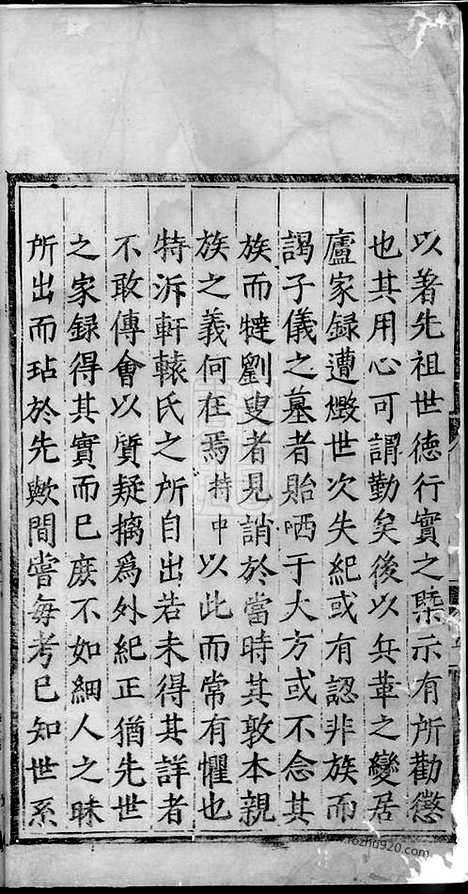 以著先祖世徳行實之槩示有所勸懲
也其用心可謂勤矣後以兵革之變居
廬家録遭燬世次失紀或有認非族而
謁子儀之墓者貽哂于大方或不念其
族而㺇劉叟者見誚於當時其敦本親
族之義何在焉特中以此而常有懼也
特泝軒轅氏之所自出若未得其詳者
不敢傅會以質疑摛爲外紀正猶先世
之家録得其實而已庶不如細人之昧
所出而玷於先歟間嘗每考已知世系
www.fozhu920.com